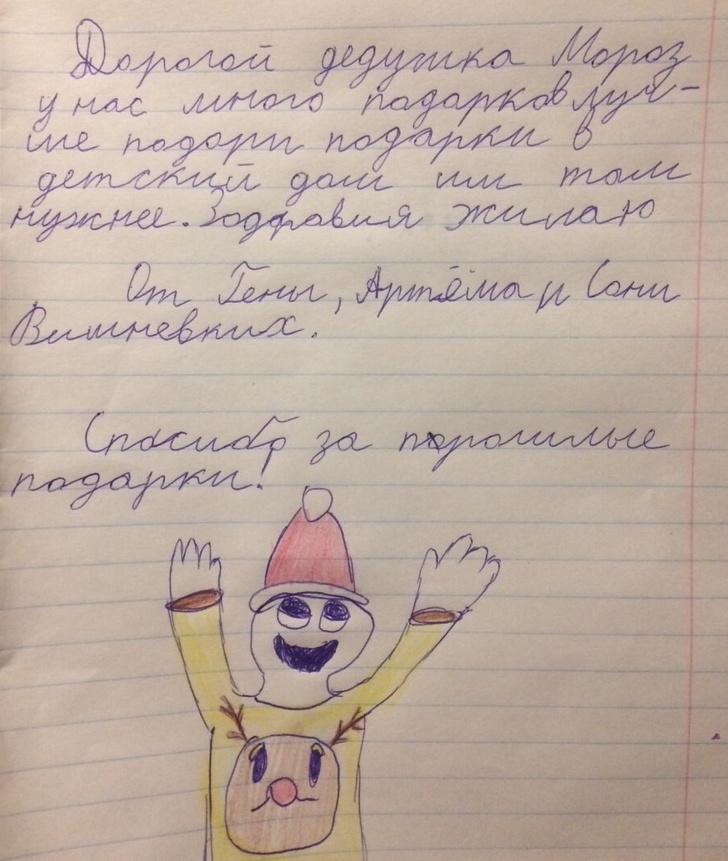 Дорогой дедушка Мороз
у нас много подарков луч-
ше подари подарки в
детский дом им там
нужнее. Здоравия жилаю
От Гены, Артёма и Сони
Вишневких.
Спосибо за порошлые
подарки!